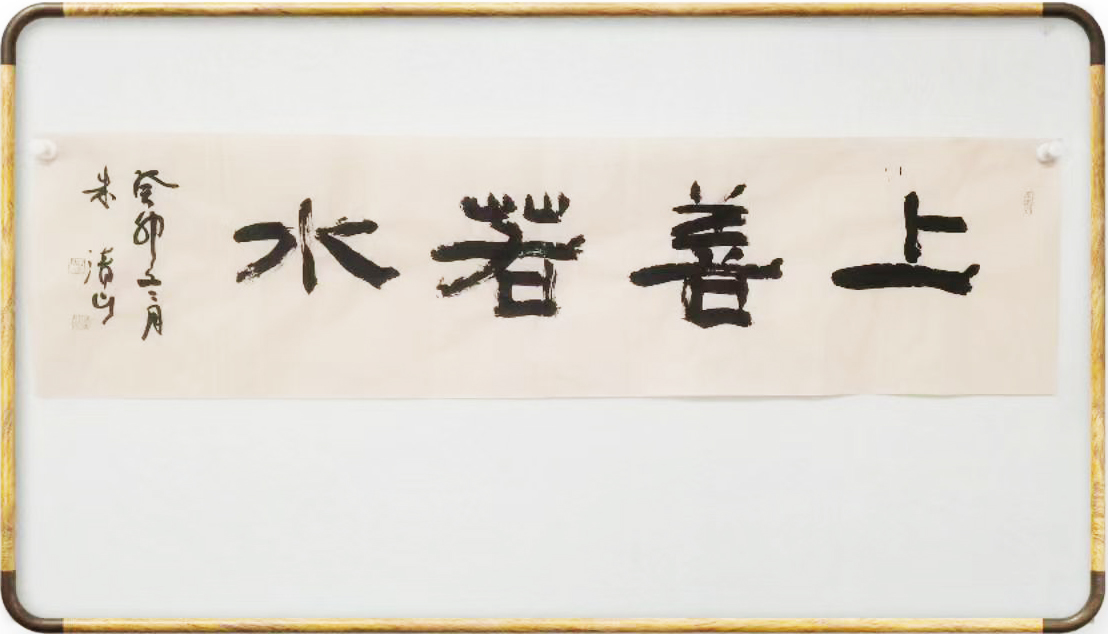 上善若水
癸卯月
朱清山